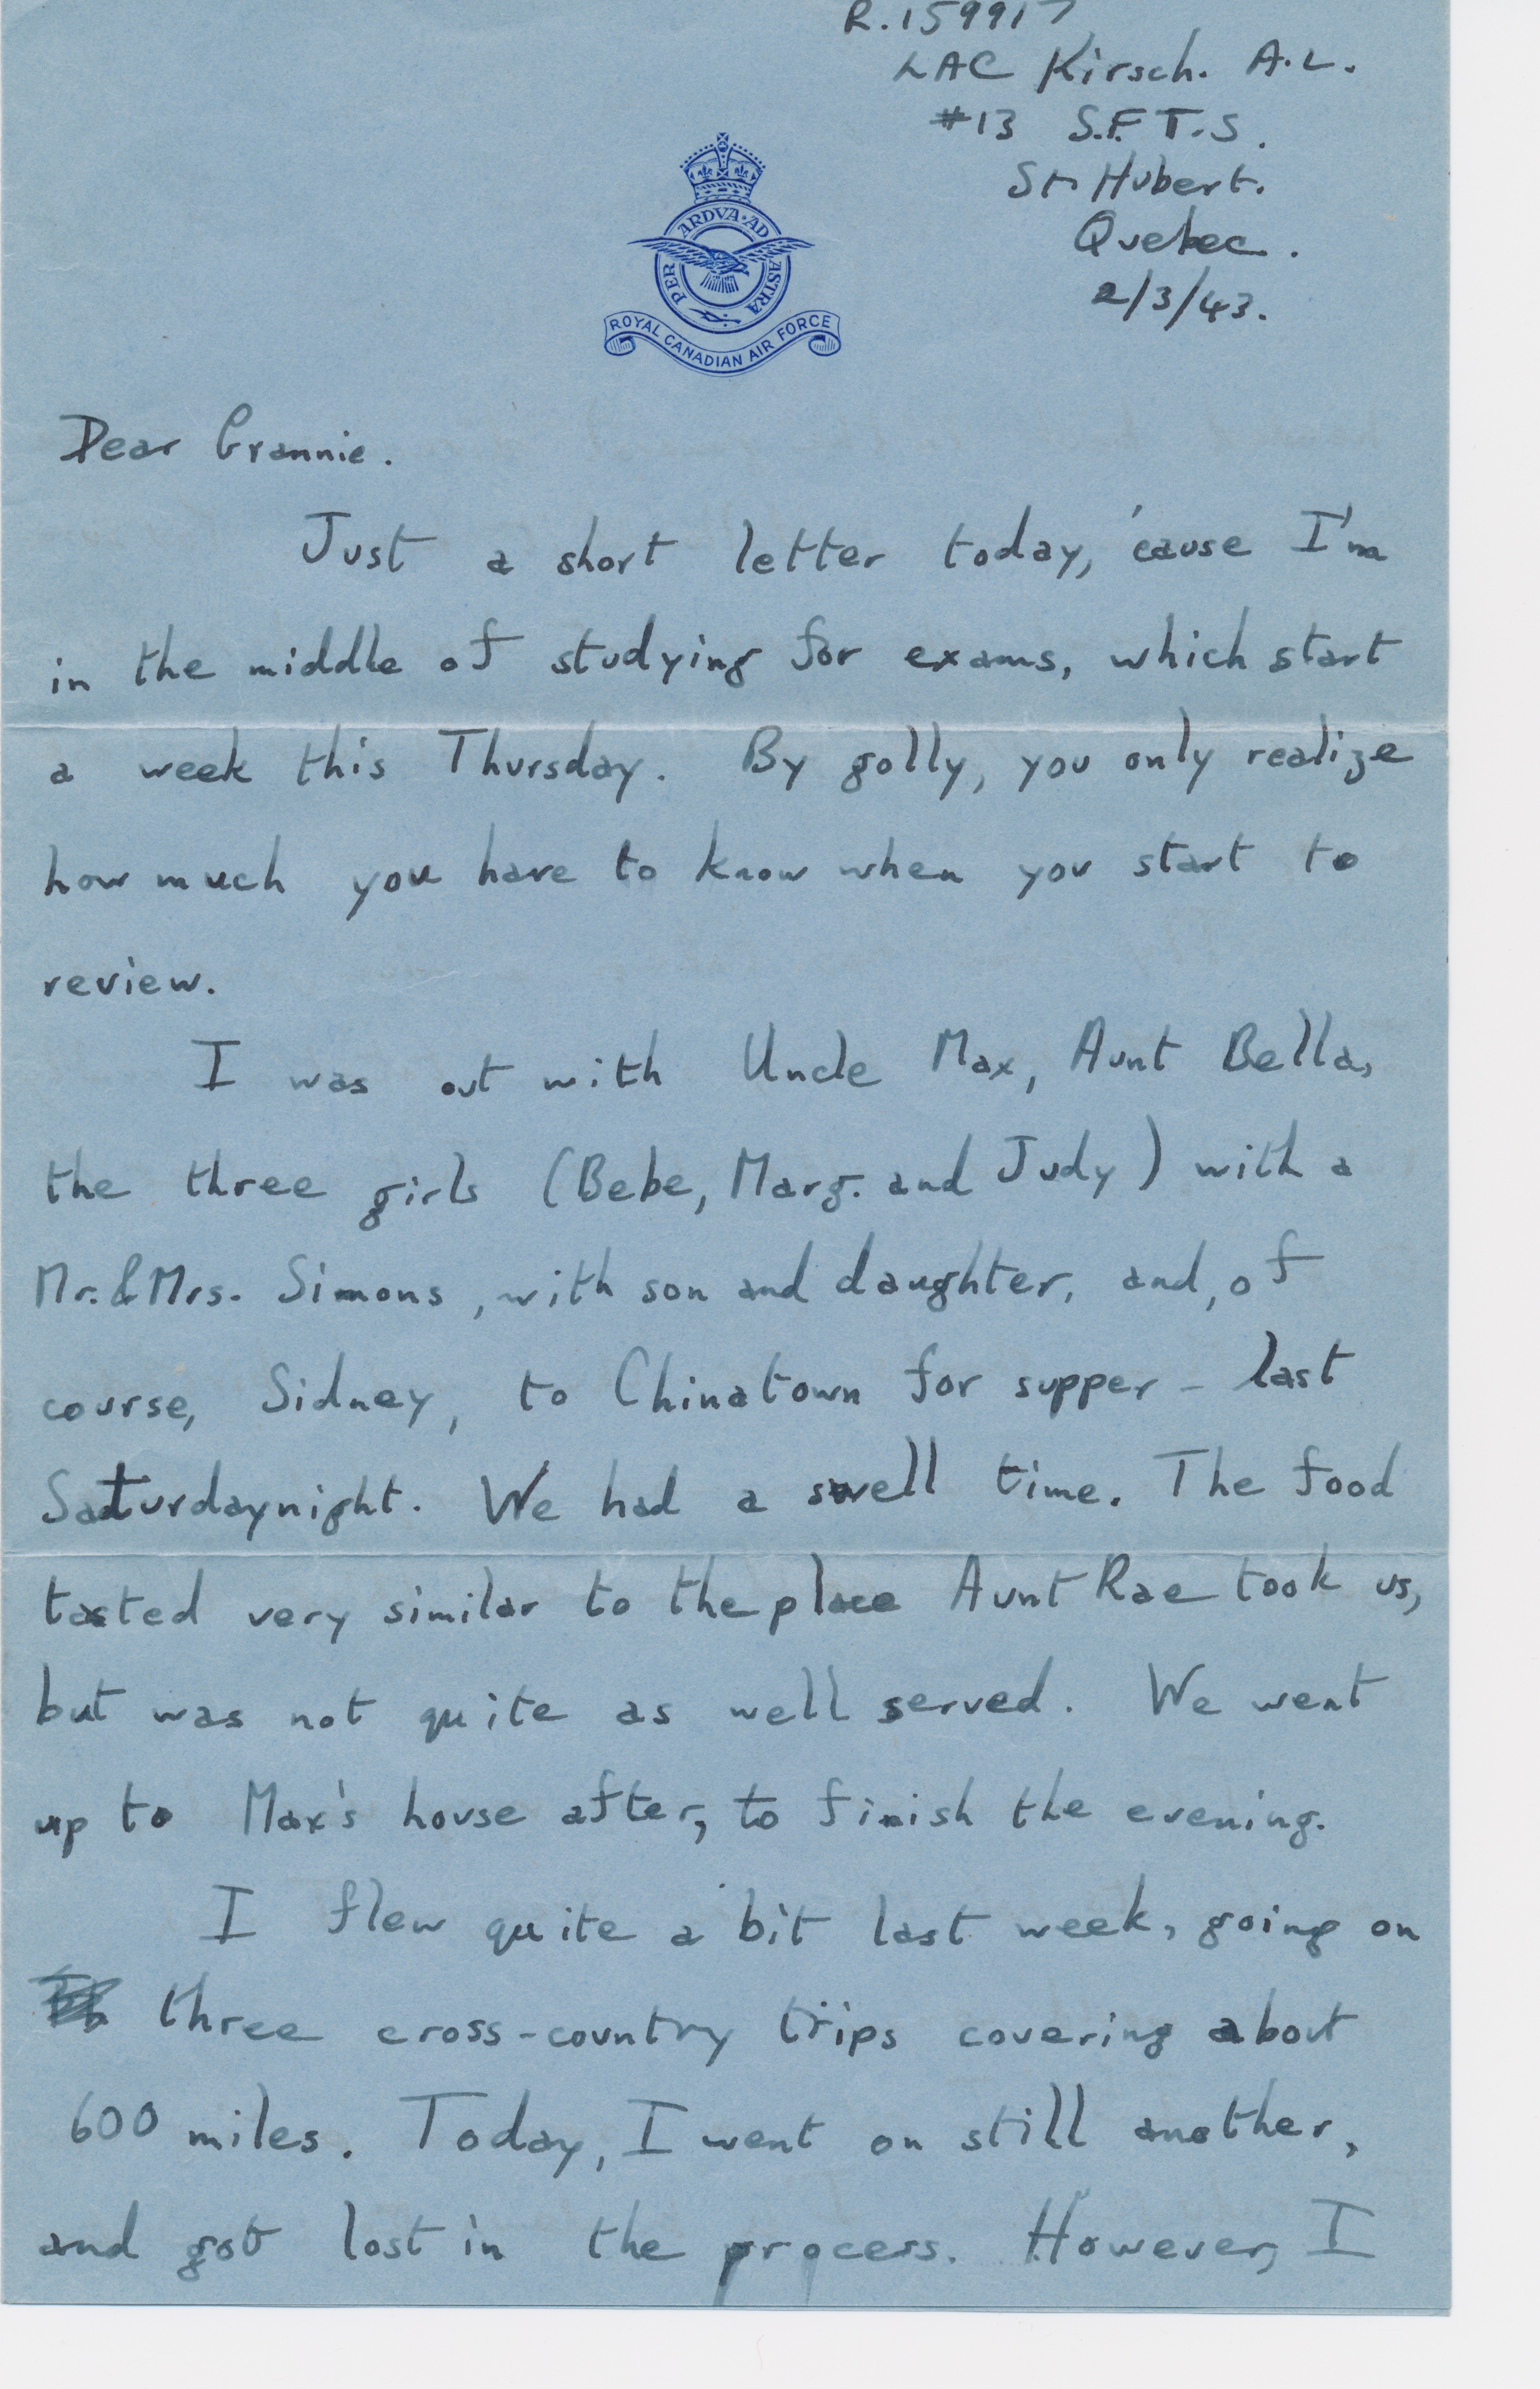 R.159917
LAC Kirsch. A.L.
#13 S.F.T.S.
St Hubert.
Quebec.
2/3/43.
PER ARDVA·AD ASTRA
ROYAL CANADIAN AIR FORCE
Dear Grannie.
Just a short letter today, 'cause I'm
in the middle of studying for exams, which start
a week this Thursday. By golly, you only realize
how much you have to know when you start to
review.
I was out with Uncle Max, Aunt Bella,
the three girls (Bebe, Marg. and Judy) with a
Mr. & Mrs. Simons, with son and daughter, and, of
course, Sidney, to Chinatown for supper - last
Saturday night. We had a swell time. The food
tasted very similar to the place Aunt Rae took us,
but was not quite as well served. We went
up to Max's house after, to finish the evening.
I flew quite a bit last week, going on
three cross-country trips covering about
600 miles. Today, I went on still another,
and got lost in the process. However, I